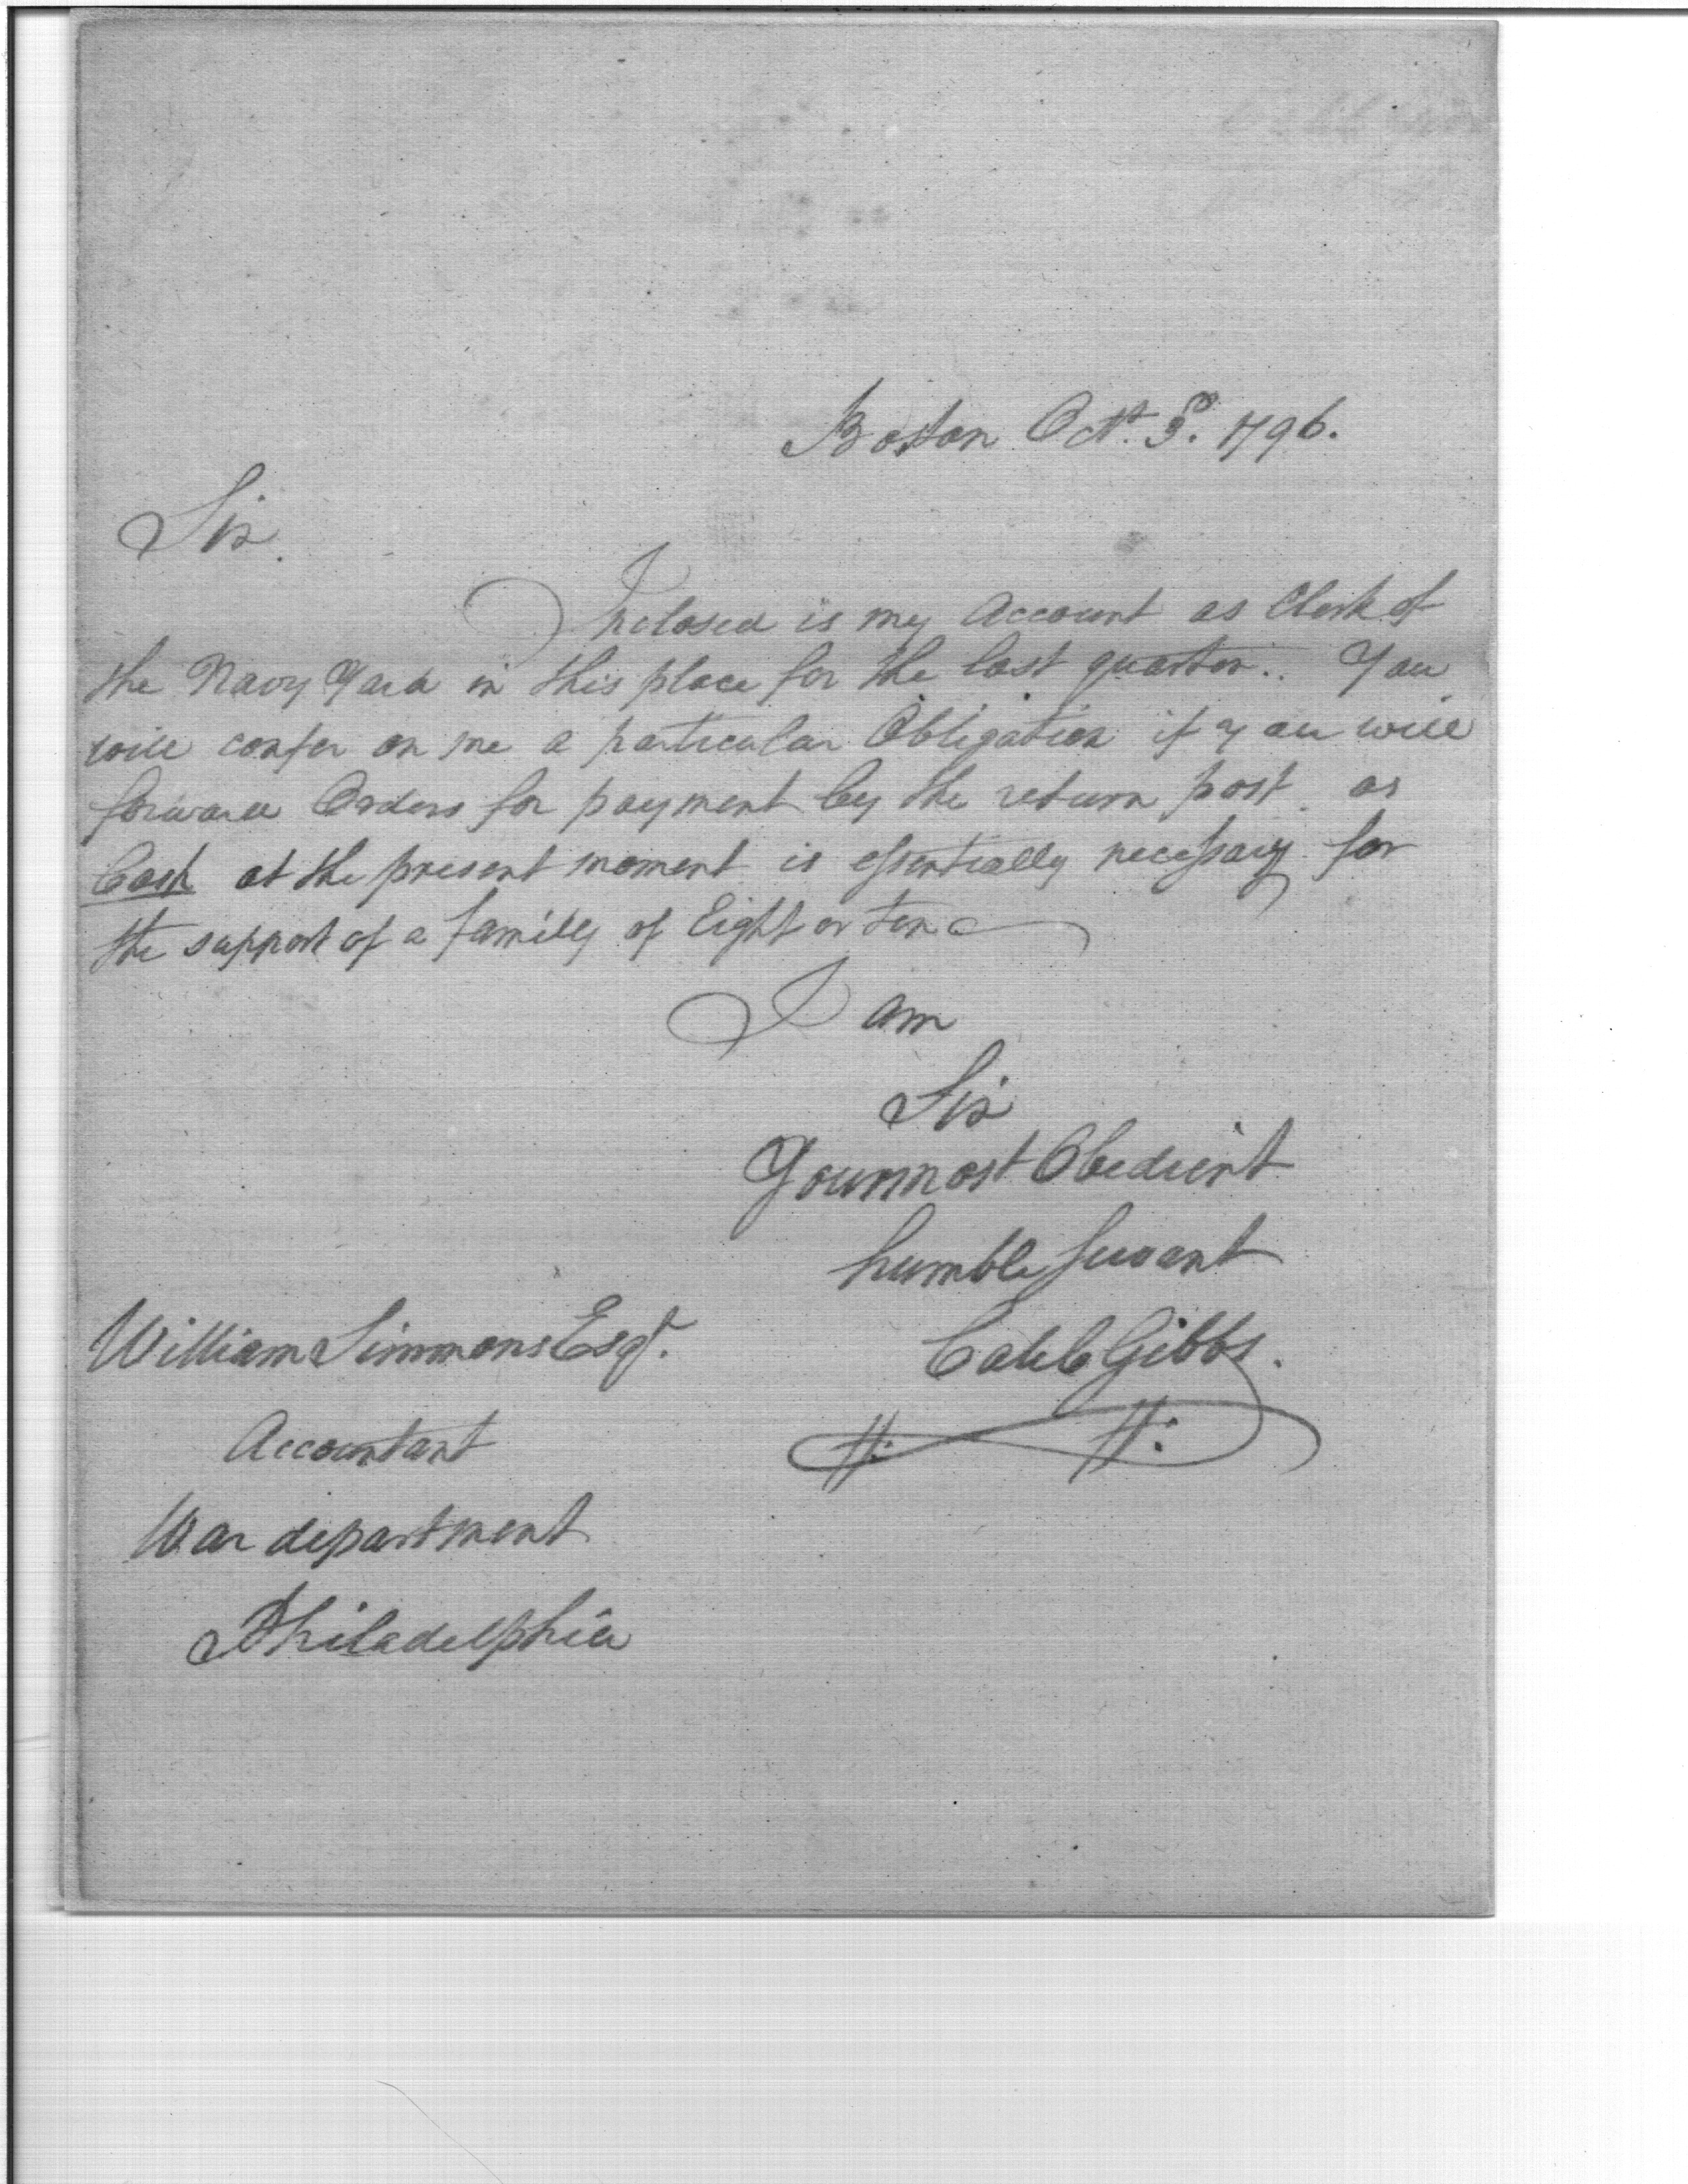 Boston Oct.r 3d. 1796.
Sir.
Inclosed is my Account as Clerk of
the Navy Yard in this place for the last quarter. You
will confer on me a particular Obligation if you will
forward Orders for payment by the return post as
Cash at the present moment is essentially necessary for
the support of a family of Eight or ten
I am
Sir
Your most Obedient
humble servant
William Simmons Esqr.
Caleb Gibbs.
Accountant
War department
Philadelphia